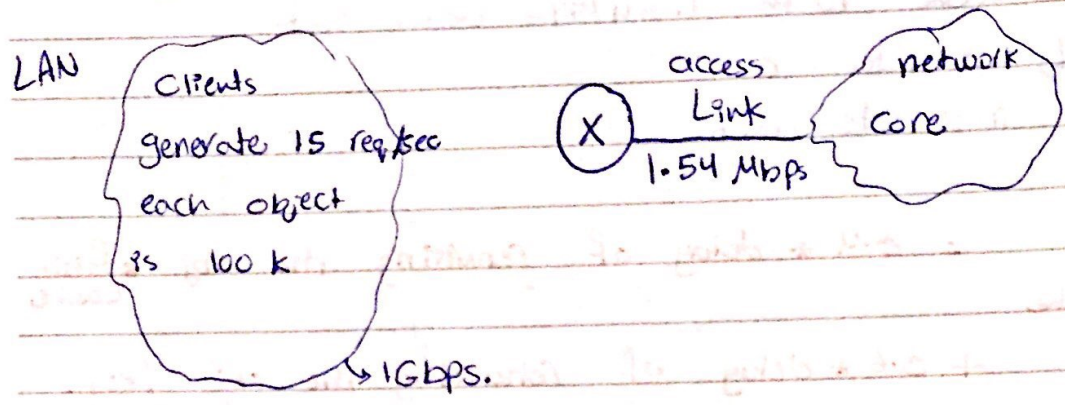 LAN
Clients
generate 15 req/sec
each object
is 100 k
1Gbps.
X
access
Link
1.54 Mbps
network
core